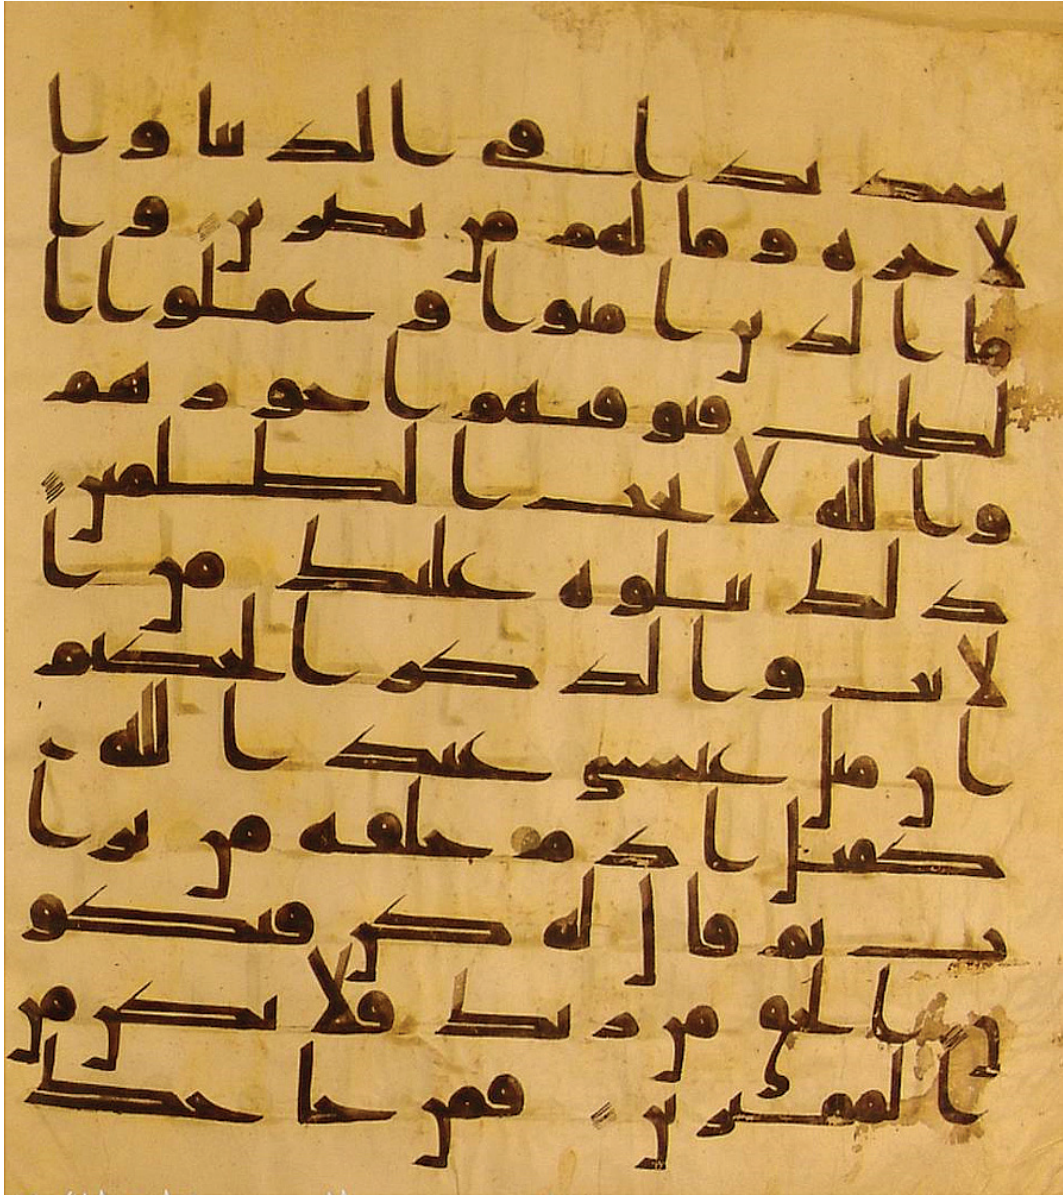 شديدا في الدنيا وا
لاخره وما لهم من نصرين وا
ما الذين امنوا وعملوا ا
لصلحت فنوفيهم اجورهم
والله لا يحب الظلمين
ذلك نتلوه عليك من ا
لايت والذكر الحكيم
ان مثل عيسى عند الله
كمثل ادم خلقه من ترا
ب ثم قال له كن فيكو
ن الحق من ربك فلا تكن من
الممترين فمن حاجك